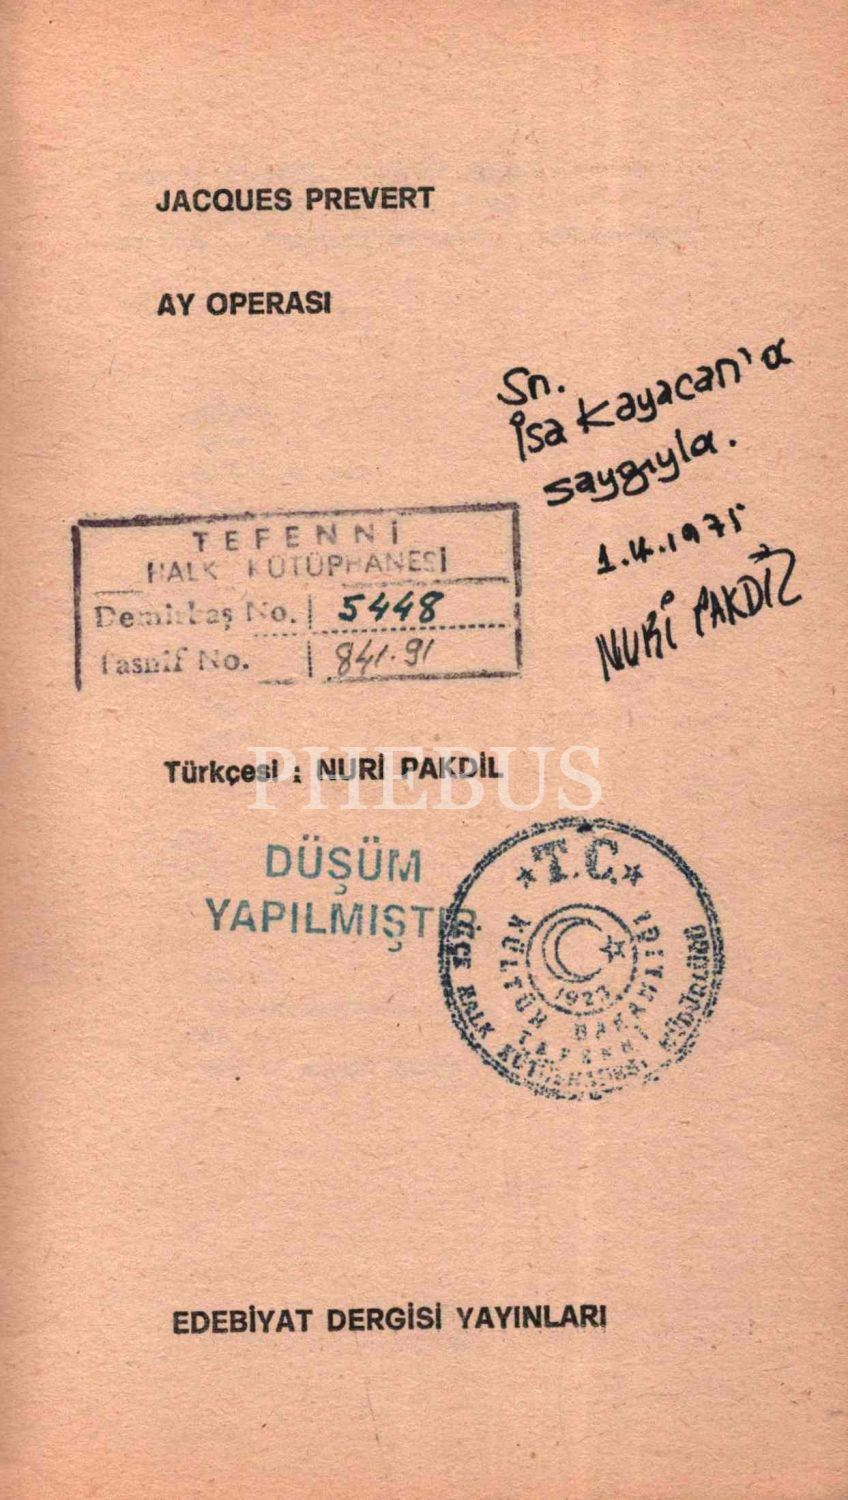 JACQUES PREVERT
AY OPERASI
Sn.
İsa Kayacan'a
saygıyla.
1.4.1975
NURİ PAKDİL
TEFENNİ
HALK KÜTÜPHANESİ
Demirbaş No. 5448
Tasnif No. 841.91
Türkçesi : NURİ PAKDİL
PHEBUS
DÜŞÜM
YAPILMIŞTIR
T.C.
KÜLTÜR BAKANLIĞI
1923
TEFENNİ
İLÇE HALK KÜTÜPHANESİ MÜDÜRLÜĞÜ
EDEBİYAT DERGİSİ YAYINLARI